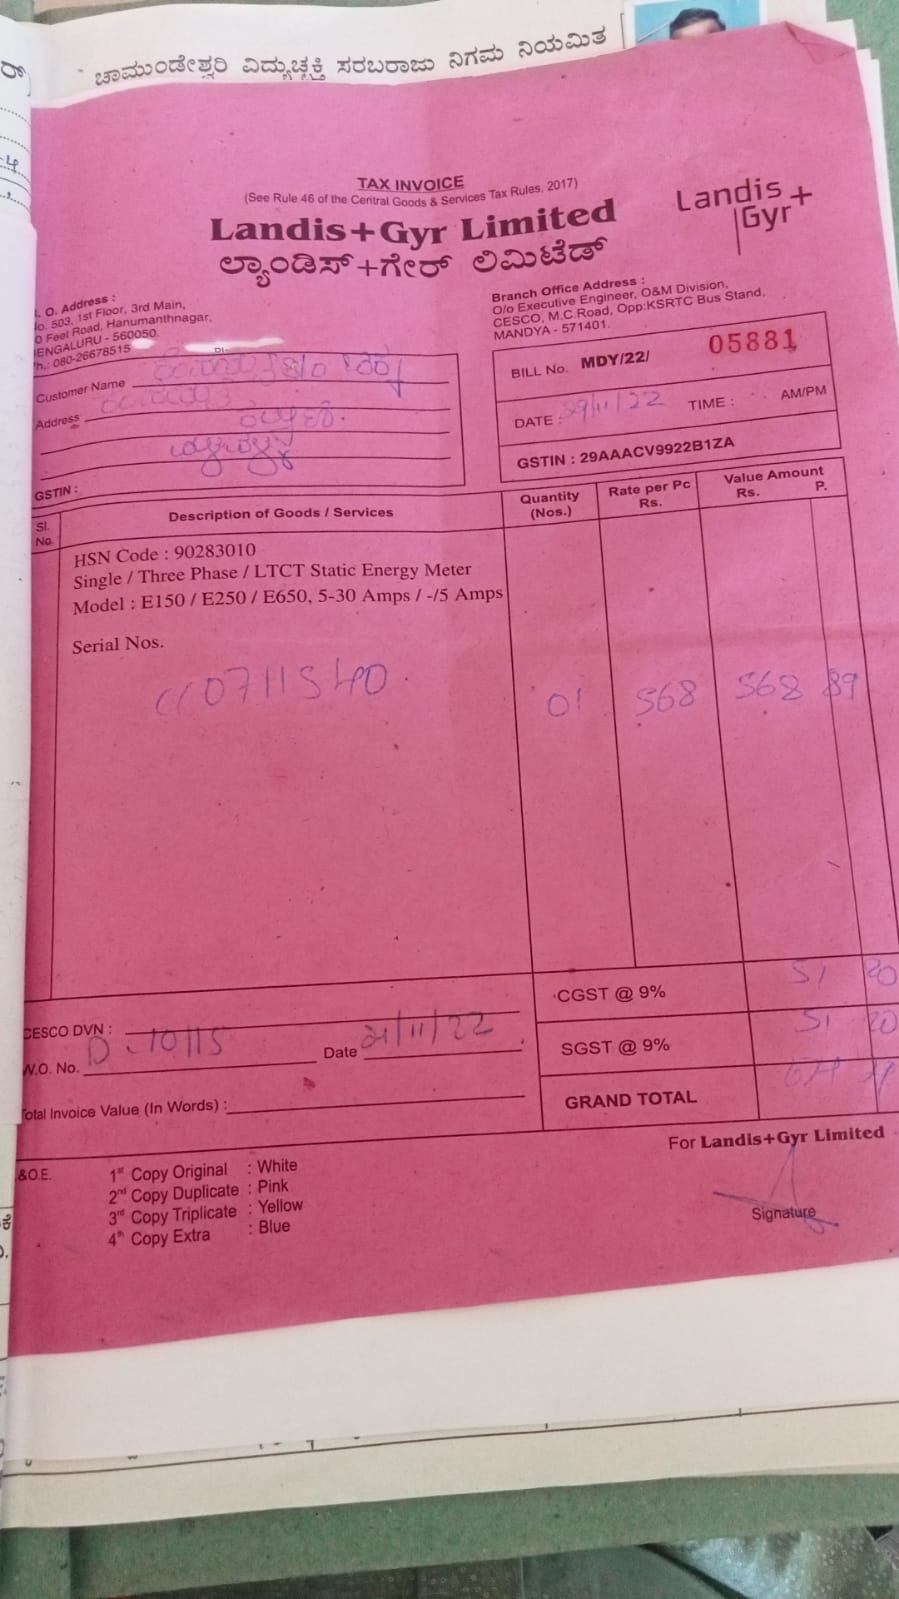 ಚಾಮುಂಡೇಶ್ವರಿ ವಿದ್ಯುಚ್ಛಕ್ತಿ ಸರಬರಾಜು ನಿಗಮ ನಿಯಮಿತ
TAX INVOICE
(See Rule 46 of the Central Goods & Services Tax Rules, 2017)
Landis+Gyr Limited
ಲ್ಯಾಂಡಿಸ್+ಗೇರ್ ಲಿಮಿಟೆಡ್
Landis
Gyr
. O. Address :
o. 503, 1st Floor, 3rd Main,
0 Feet Road, Hanumanthnagar,
ENGALURU - 560050.
h.: 080-26678515
Branch Office Address :
O/o Executive Engineer, O&M Division,
CESCO, M.C.Road, Opp:KSRTC Bus Stand,
MANDYA - 571401.
Customer Name
Address
GSTIN :
BILL No. MDY/22/ 05881
DATE : /11/22 TIME : AM/PM
GSTIN : 29AAACV9922B1ZA
Sl. No. Description of Goods / Services Quantity (Nos.) Rate per Pc Rs. Value Amount Rs. P.
HSN Code : 90283010
Single / Three Phase / LTCT Static Energy Meter
Model : E150 / E250 / E650, 5-30 Amps / -/5 Amps
Serial Nos.
01 568 568 89
CGST @ 9% 51 20
SGST @ 9% 51 20
GRAND TOTAL
CESCO DVN :
W.O. No. D-10115 Date /11/22
Total Invoice Value (In Words) :
&O.E.
1st Copy Original : White
2nd Copy Duplicate : Pink
3rd Copy Triplicate : Yellow
4th Copy Extra : Blue
For Landis+Gyr Limited
Signature